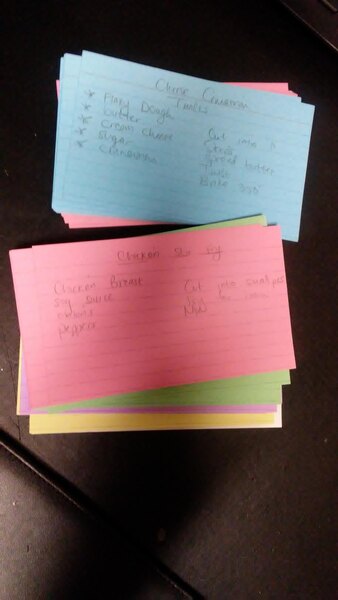 Cheese Cinnamon
Twists
* Flaky Dough
* butter
* Cream cheese
* Sugar
* Cinnamon
Cut into
Spread butter
Twist
Bake 350
Chicken Stir
Chicken Breast
Soy Sauce
onions
Pepper
Cut into small pcs